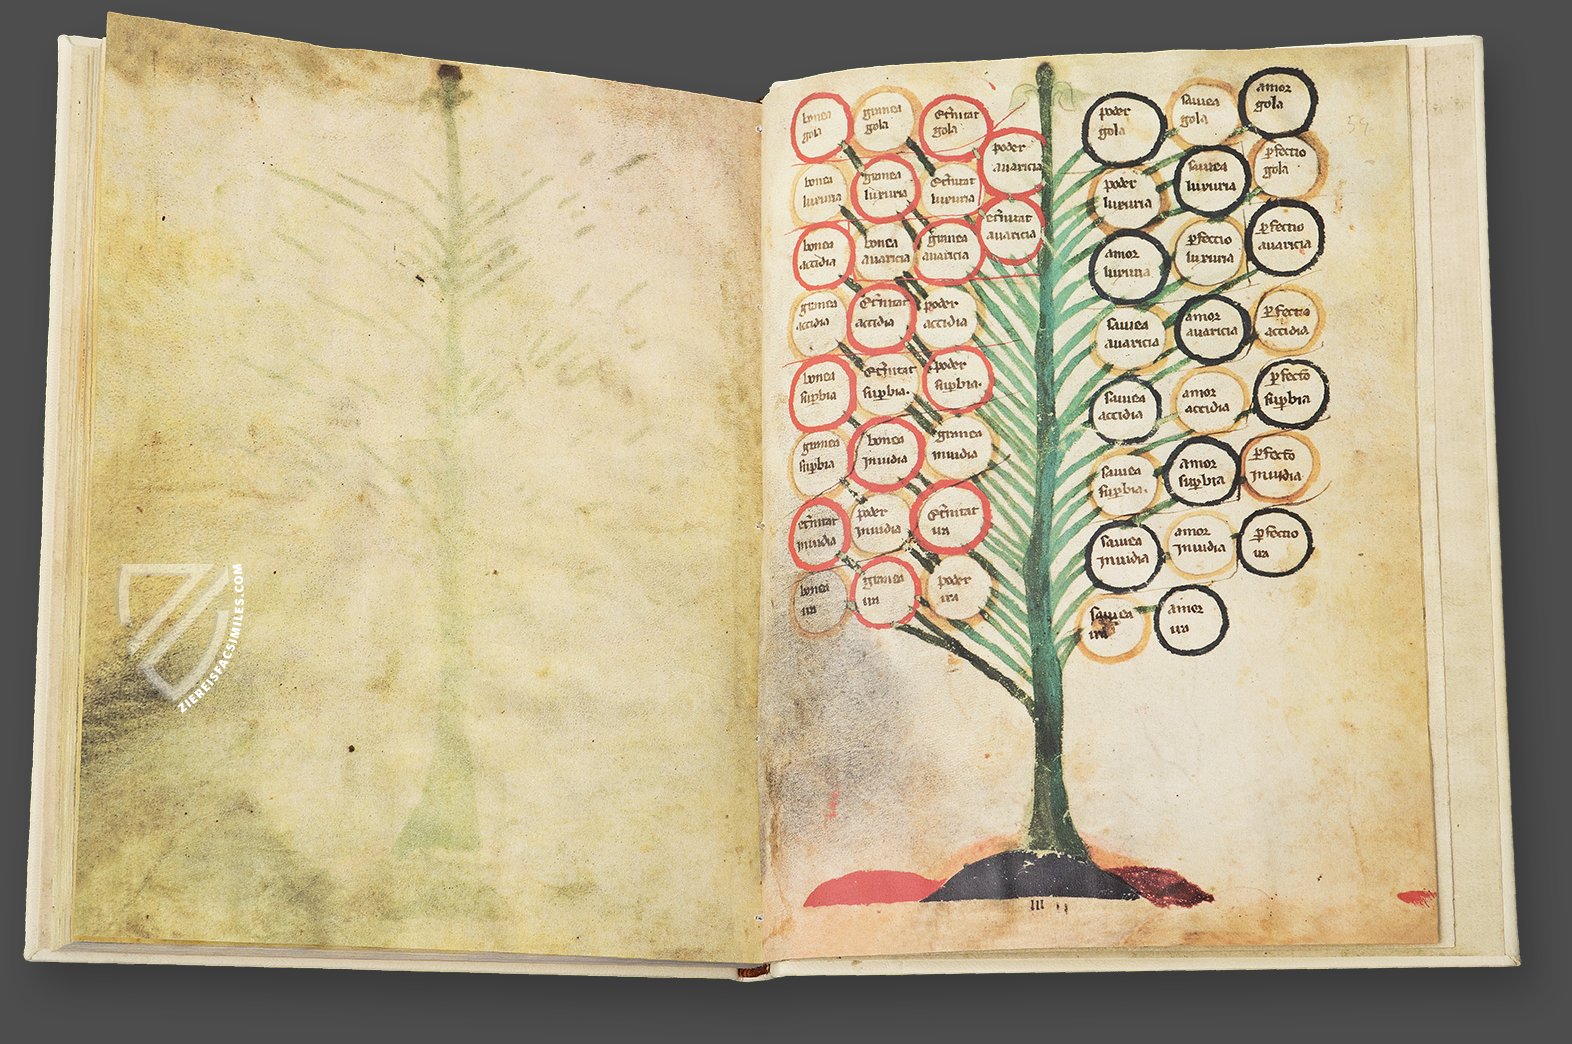 ZIEREISFACSIMILES.COM
59
bonea
gola
granea
gola
et̃nitat
gola
poder
auaricia
bonea
luxuria
granea
luxuria
et̃nitat
luxuria
et̃nitat
auaricia
bonea
accidia
bonea
auaricia
granea
auaricia
granea
accidia
et̃nitat
accidia
poder
accidia
bonea
suꝑbia
et̃nitat
suꝑbia.
poder
suꝑbia.
granea
suꝑbia
bonea
inuidia
granea
inuidia
et̃nitat
inuidia
poder
inuidia
et̃nitat
ira
bonea
ira
granea
ira
poder
ira
poder
gola
sauiea
gola
amor
gola
poder
luxuria
sauiea
luxuria
ꝑfectio
gola
amor
luxuria
ꝑfeccio
luxuria
ꝑfectio
auaricia
sauiea
auaricia
amor
auaricia
ꝑfectio
accidia
sauiea
accidia
amor
accidia
ꝑfectio
suꝑbia
sauiea
suꝑbia.
amor
suꝑbia
ꝑfectio
inuidia
sauiea
inuidia
amor
inuidia
ꝑfectio
ira
sauiea
ira
amor
ira
III